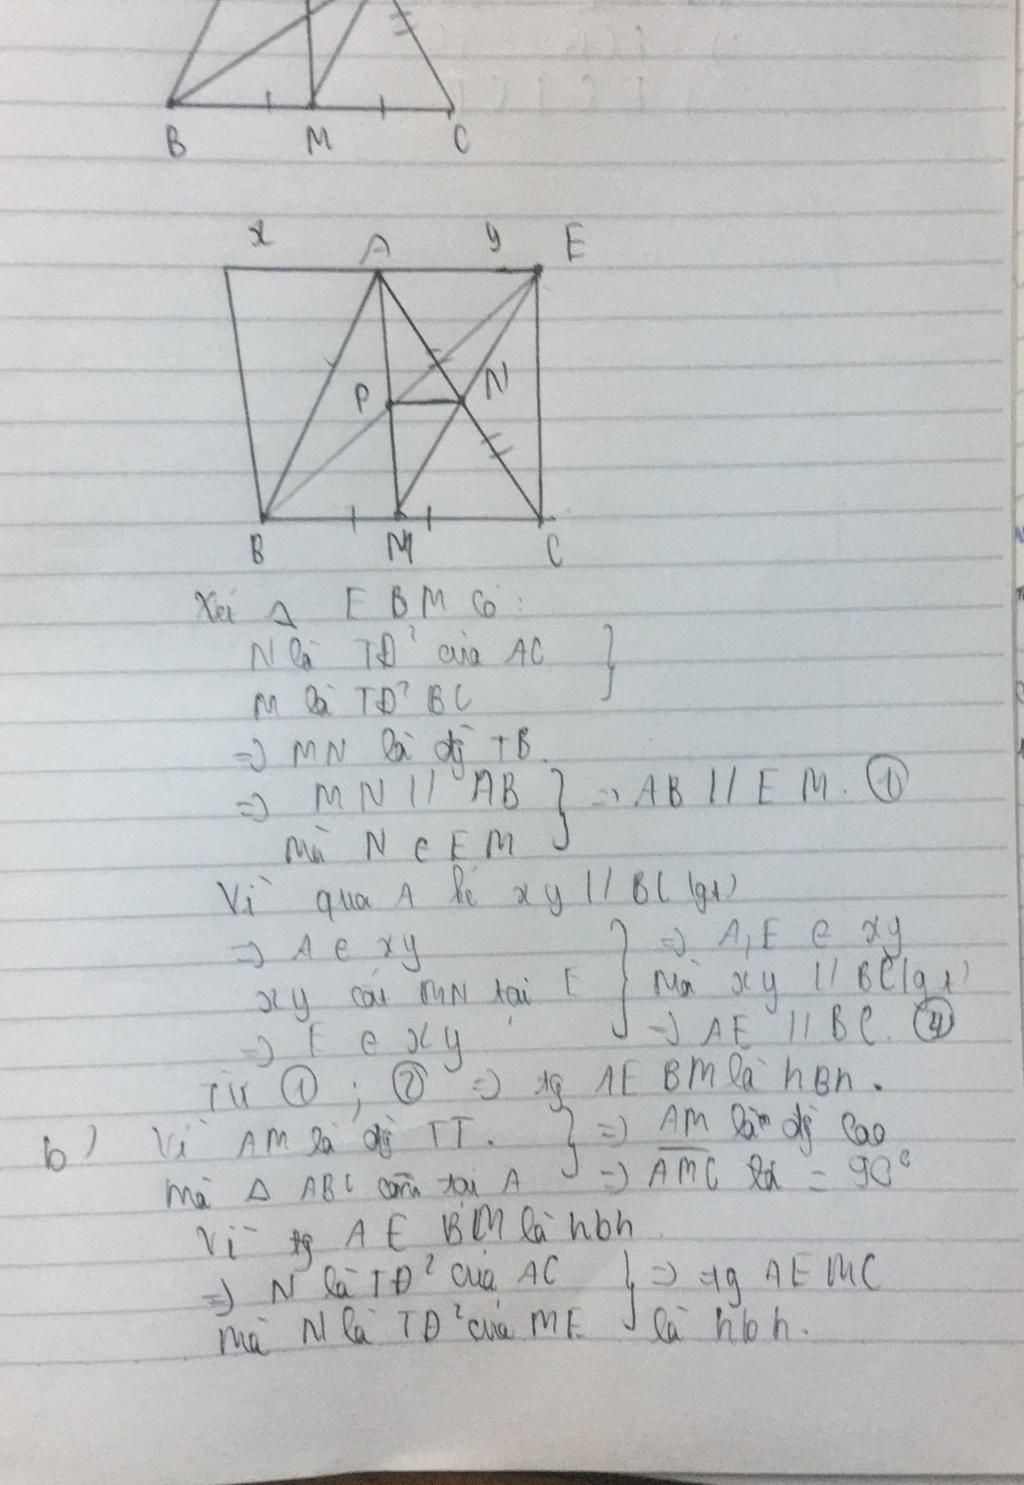 B M C
x A y E
P N
B M C
Xét Δ EBM có:
N là TĐ² của AC
M là TĐ² BC
=> MN là đg TB.
=> MN // AB } => AB // EM. ①
mà N ∈ EM
Vì qua A kẻ xy // BC (gt)
=> A ∈ xy } => A, E ∈ xy
xy cắt MN tại E } Mà xy // BC (gt)
=> E ∈ xy => AE // BC. ②
Từ ① ; ② => tg AEBM là hBh.
b) Vì AM là đg TT. } => AM là đg cao
mà Δ ABC cân tại A => AMC = 90°
Vì tg AEBM là hbh
=> N là TĐ² của AC } => tg AEMC
mà N là TĐ² của ME là hbh.